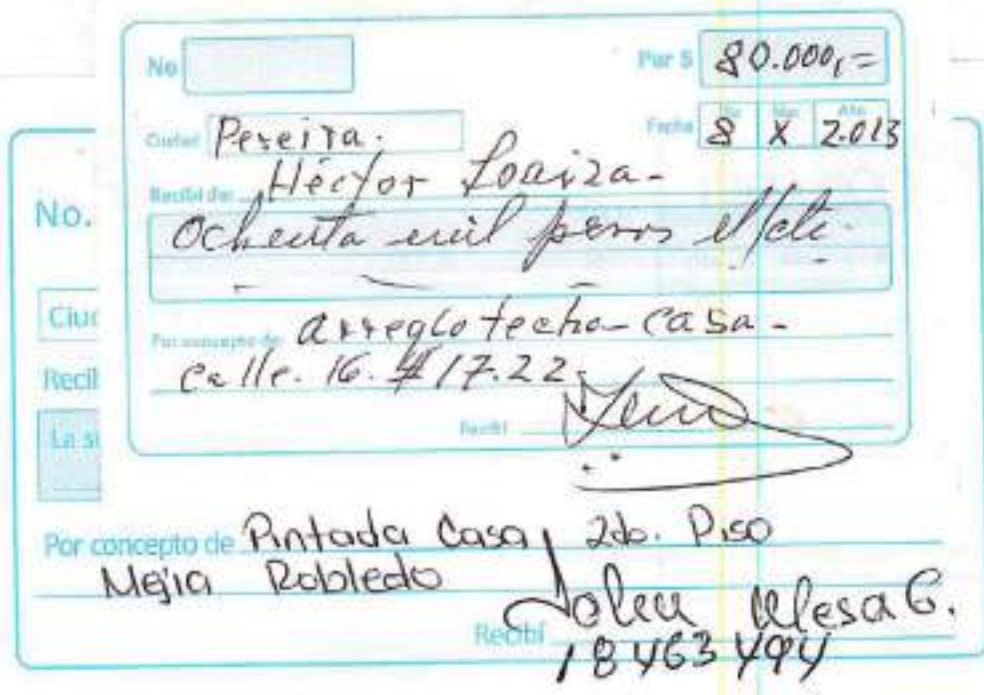 No
Por $ 80.000,=
Ciudad Pereira.
Fecha Día Mes Año
8 X 2.013
Recibí de: Héctor Loaiza-
Ochenta mil pesos M/cte.
Por concepto de: arreglo techo-casa-
calle. 16. #17.22-
Recibí
No.
Ciud
Recib
La su
Por concepto de Pintada Casa 2do. Piso
Mejia Robledo
Recibí Mesa G.
18463494